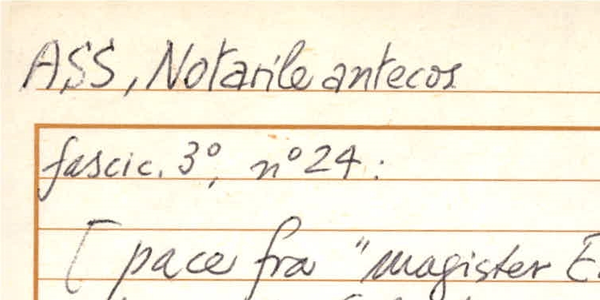 ASS, Notarile antecos
fascic. 3º, nº 24:
[ pace fra "magister E.